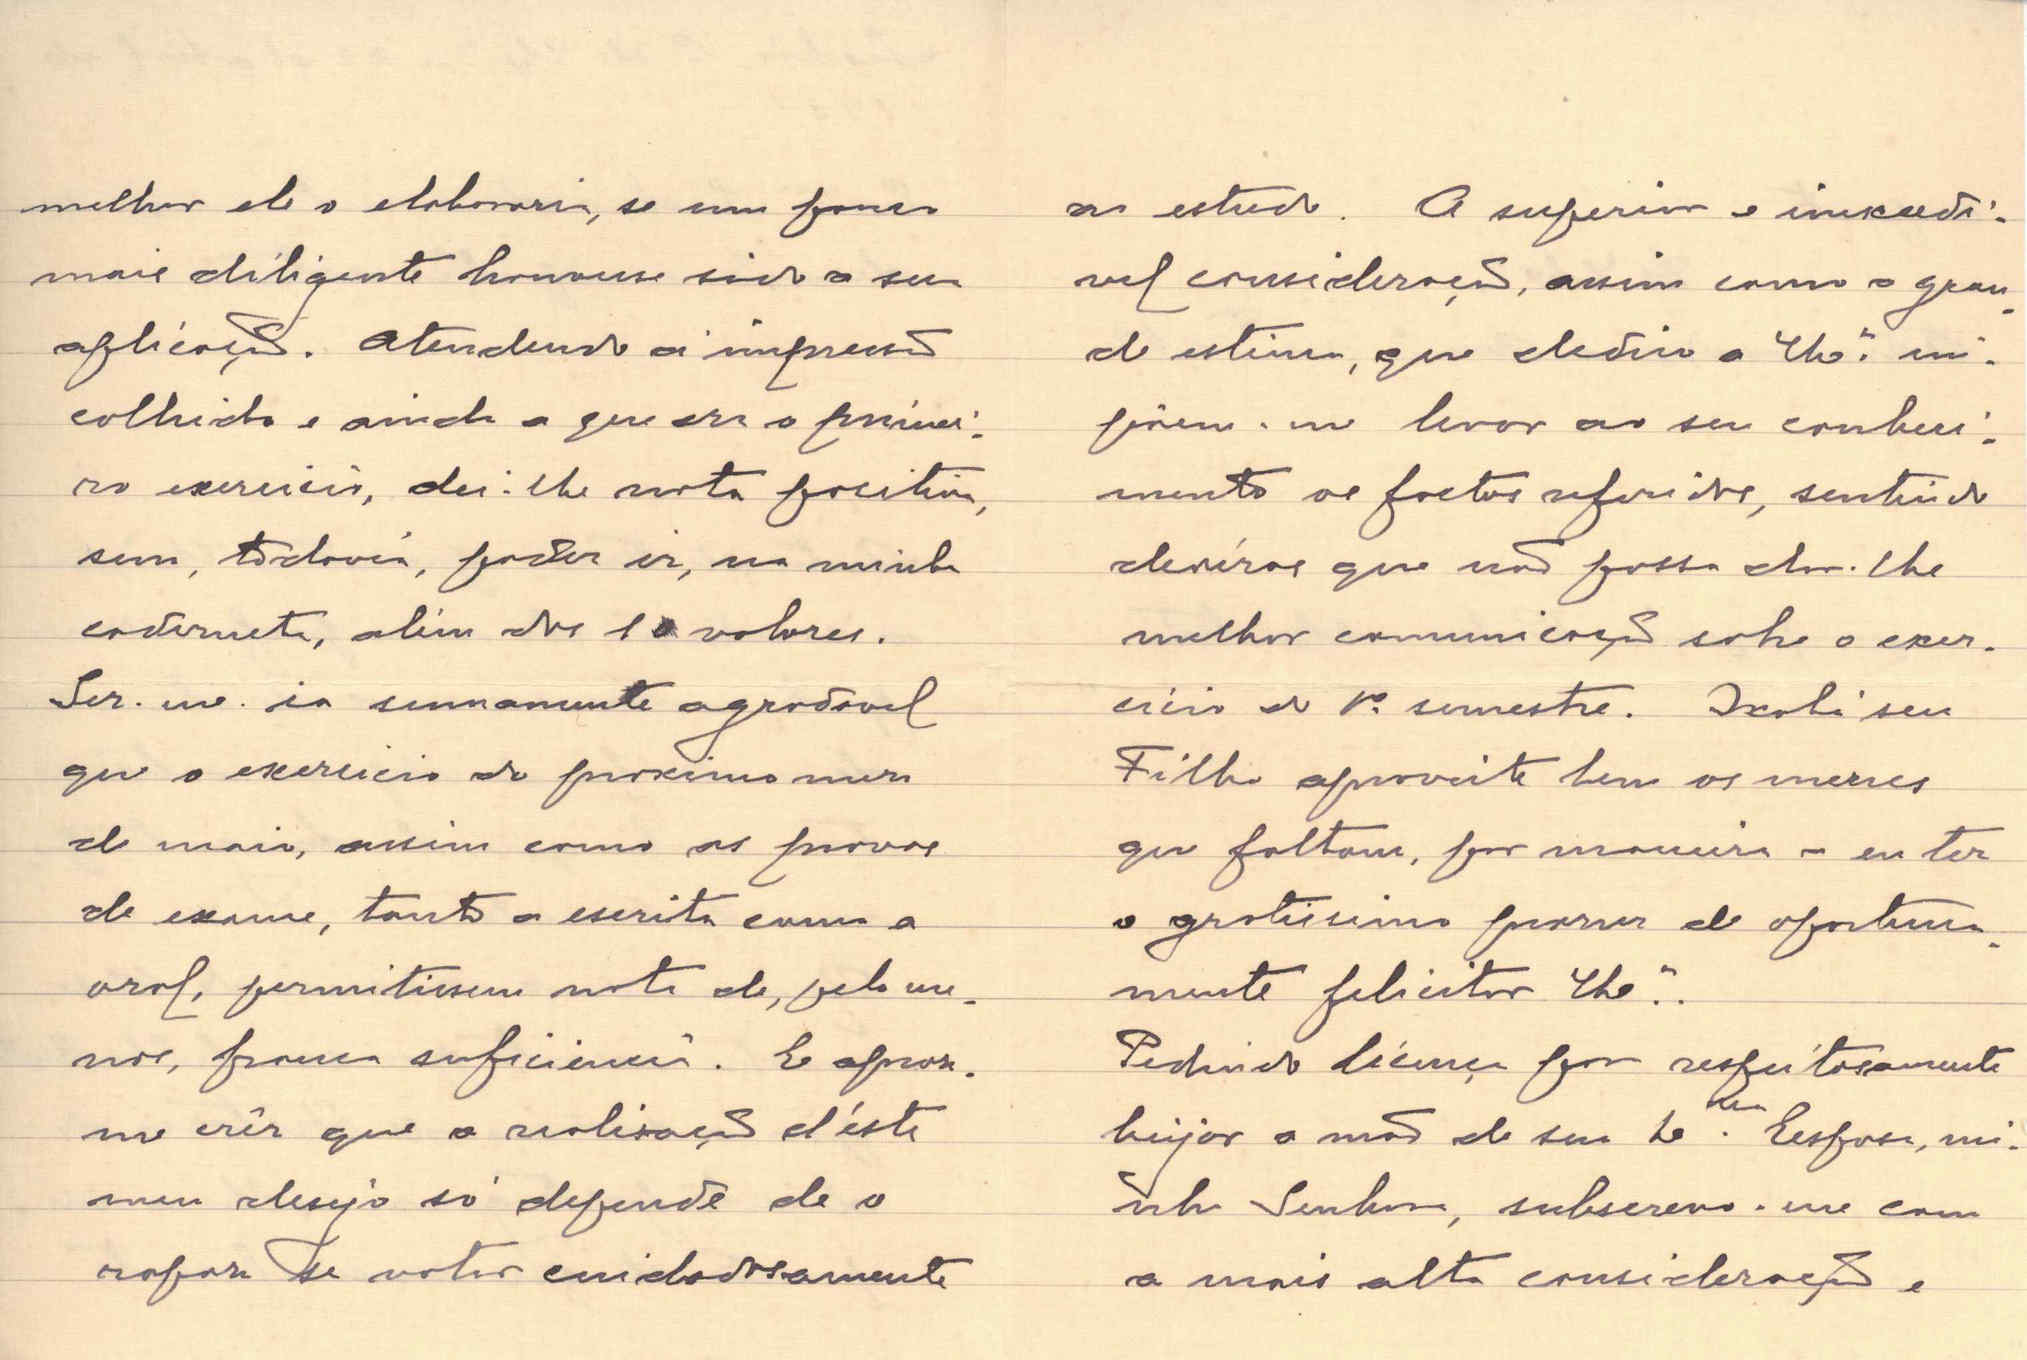 melhor ele o elaboraria, se um pouco
mais diligente houvesse sido a sua
aplicação. Atendendo á impressão
colhida e ainda a que era o primei-
ro exercicio, dei-lhe nota positiva,
sem, todavia, poder ir, na minha
caderneta, além dos 10 valores.
Ser-me-ia summamente agradavel
que o exercicio do proximo mez
de maio, assim como as provas
de exame, tanto a escrita como a
oral, permitissem nota de, pelo me-
nos, franca suficiencia. E apraz-
me crêr que a realisação d'éste
meu desejo só depende de o
rapaz se votar cuidadosamente
ao estudo. A superior e inexcedi-
vel consideração, assim como a gran-
de estima, que dedico a im-
põem-me levar ao seu conheci-
mento os factos referidos, sentindo
devéras que não possa dar-lhe
melhor comunicação sobre o exer-
cicio do 1º semestre. Oxalá seu
Filho aproveite bem os mezes
que faltam, por maneira a eu ter
o gratissimo prazer de oportuna-
mente felicitar
Pedindo licença por respeitosamente
beijar a mão de sua Esposa, mi-
nha Senhora, subscrevo-me com
a mais alta consideração e